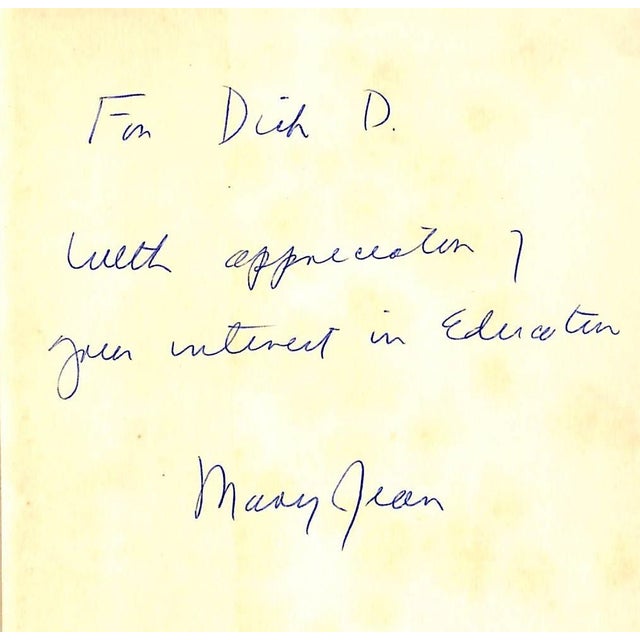 For Dick D.
With appreciation of
your interest in Education
Mary Jean